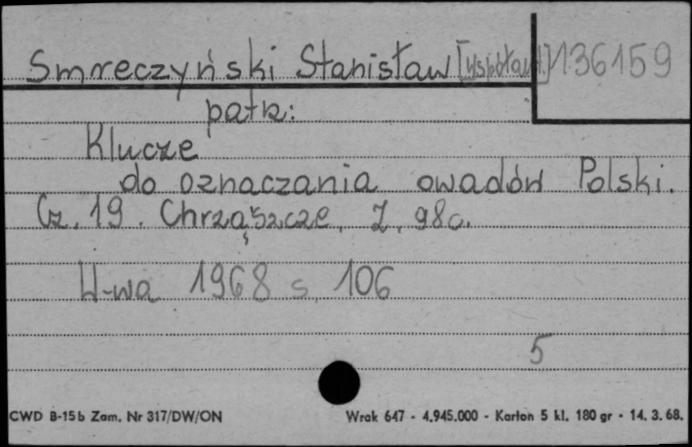 Smreczyński Stanisław [współaut.] 136159
patrz:
Klucze
do oznaczania owadów Polski.
Cz. 19. Chrząszcze, Z. 98c.
W-wa 1968 s. 106
5
CWD B-15b Zam. Nr 317/DW/ON Wrak 647 - 4.945.000 - Karton 5 kl. 180 gr - 14. 3. 68.